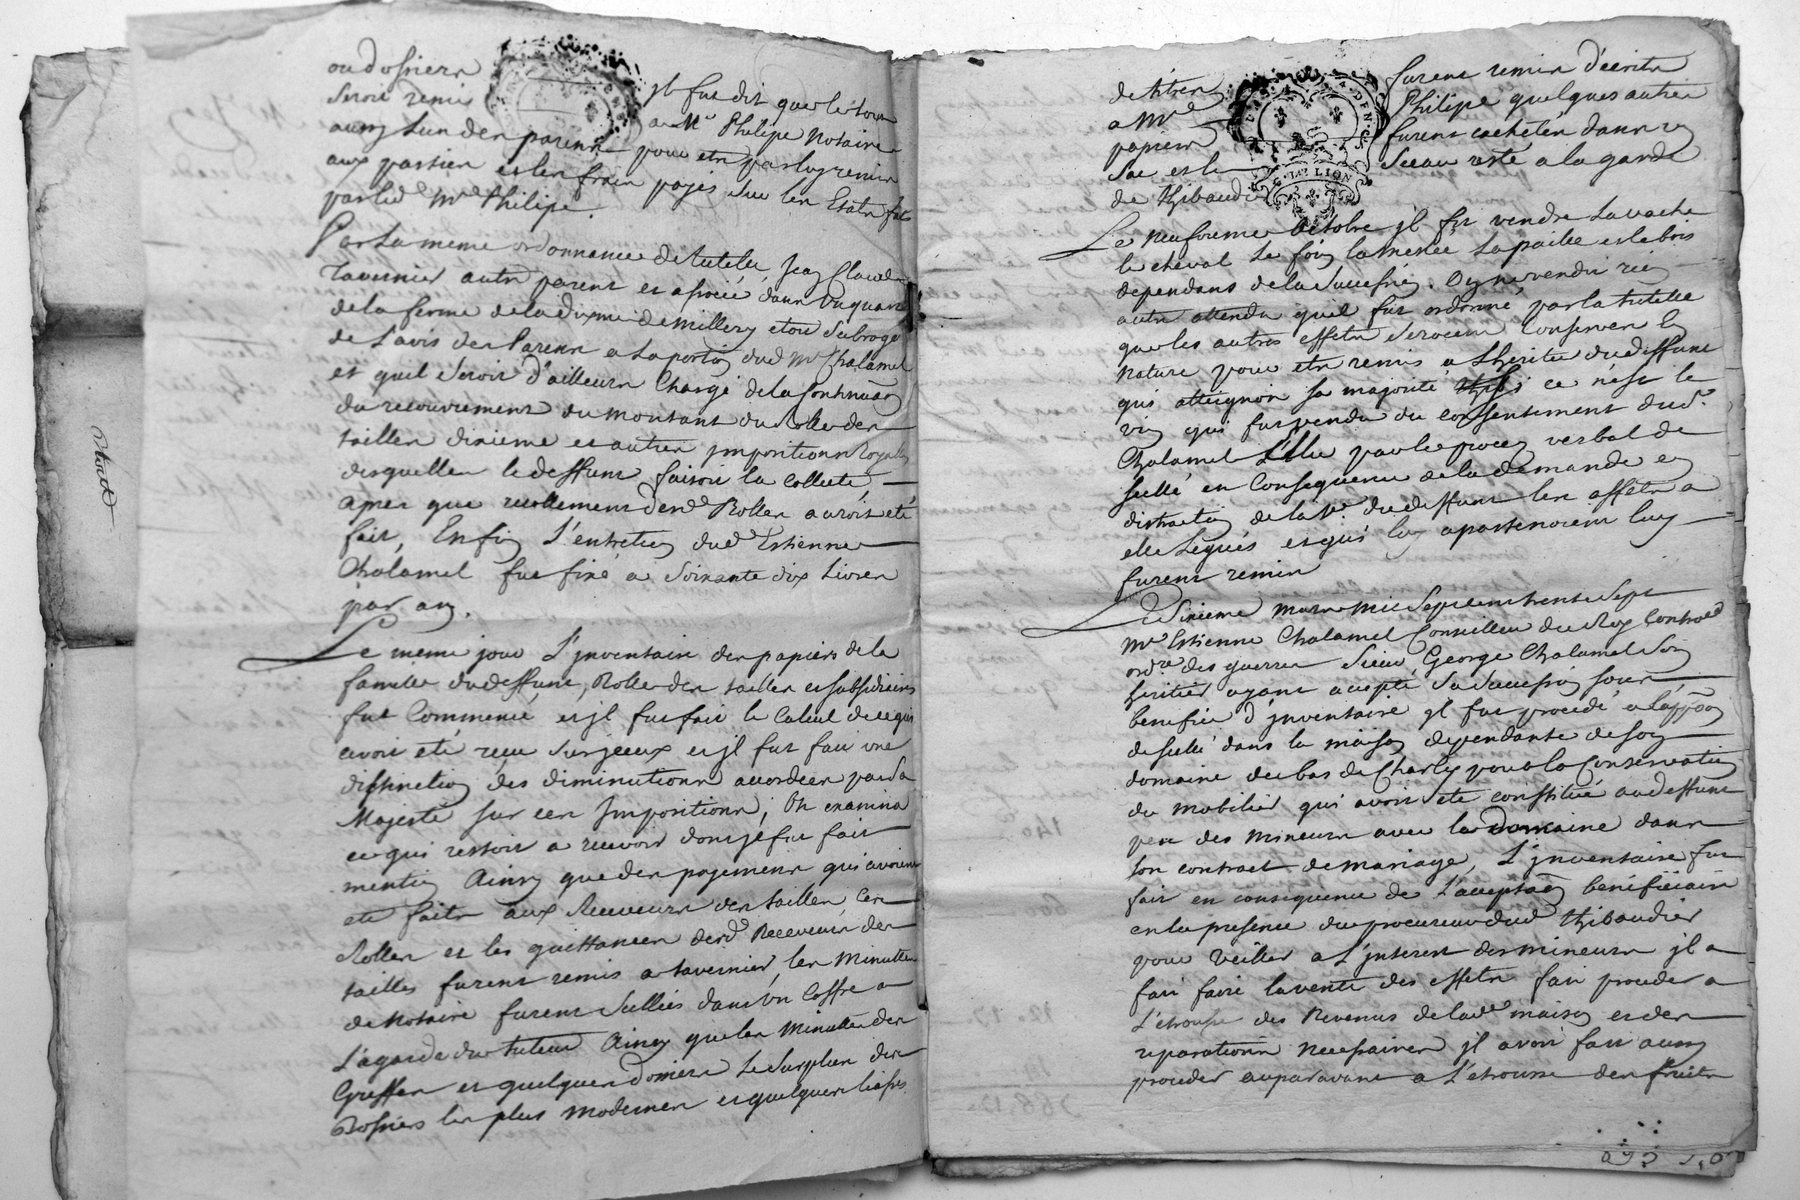 ou dossiers
seroit remis jl fut dit que le tout
aussy l'un des parens a Mr Philipe Notaire
aux parties et les frais pour etre par luy remis
par led Mre Philipe. payés sur les Estats fait
Par la meme ordonnance de tutelle, Jean Claude
Tavernier autre parent et associé dans un quart
de la ferme de la dixme de Millery etoit subrogé
de L'avis des Parens a la portion dud Mr Chalamel
et quil seroit d'ailleurs Chargé de la Continuaon
du recouvrement du montant du Rolle des
tailles dixieme et autres jmpositions Royalles
desquelles le deffunt faisoit la Collecte
apres que recollement desd Rolles auroit eté
fait, Enfin L'entretien dud Estienne
Chalamel fut fixé a soixante dix Livres
par an.
Le meme jour L'jnventaire des papiers de la
famille du deffunt, Rolle des tailles et subsidiaires
fut Commencé et jl fut fait le Calcul de ce qui
avoit eté reçu sur jceux et jl fut fait une
distinction des diminutions accordées par sa
Majesté sur ces Jmpositions, On examina
ce qui restoit a recevoir dont je fut fait
mention Ainsy que des payemens qui avoient
eté faits aux Receveurs des tailles Ces
Rolles et les quittances desd Receveurs des
tailles furent remis a tavernier, les Minuttes
de Notaire furent scellées dans un Coffre a
L'agarde du tuteur Ainsy que les Minuttes des
Greffes et quelques dossiers Le surplus des
Dossiers les plus modernes et quelques liasses
de titres furent remis d'ecrits
a Mre Philipe quelques autres
papiers furent cachetés dans un
Sac et le Sceau resté a la garde
de Thibaudier
Le neufvieme octobre jl fit vendre La vache
le cheval Le foin la menée La paille et le bois
dependans de la Succession. On ne vendit rien
autre attendu quil fut ordonné par la tutelle
que les autres effets seroient Conservés En
nature pour etre remis a L'heritier du deffunt
qui atteignoit sa majorité ce n'est le
vin qui fut vendu du consentement dud.
Chalamel L'Elu par le procès verbal de
scellé en Consequence de la demande en
distraction de la ve du deffunt les effets a
elle Legués et qui luy apartenoient luy
furent remis
Le Sixieme Mars mil Sept cens trente Sept
Mre Estienne Chalamel Conseiller du Roy Controlr
ordre des guerres Sieur George Chalamel son
heritier ayant accepté sa succession sous
benefice d'jnventaire jl fut procedé a L'apposon
de scellé dans la maison dependante de son
domaine du bas de Charly pour la Conservation
du mobilier qui avoit eté constitué au deffunt
pere des mineurs avec le domaine dans
son contract de mariage, L'jnventaire fut
fait en consequence de L'acceptaon beneficiaire
en la presence du procureur dud Thibaudier
pour Veiller a L'jnterest des mineurs jl a
fait faire la vente des effets fait proceder a
L'etrousse des Revenus de lad maison et des
reparations necessaires jl avoit fait aussy
proceder auparavant a L'etrousse des fruits